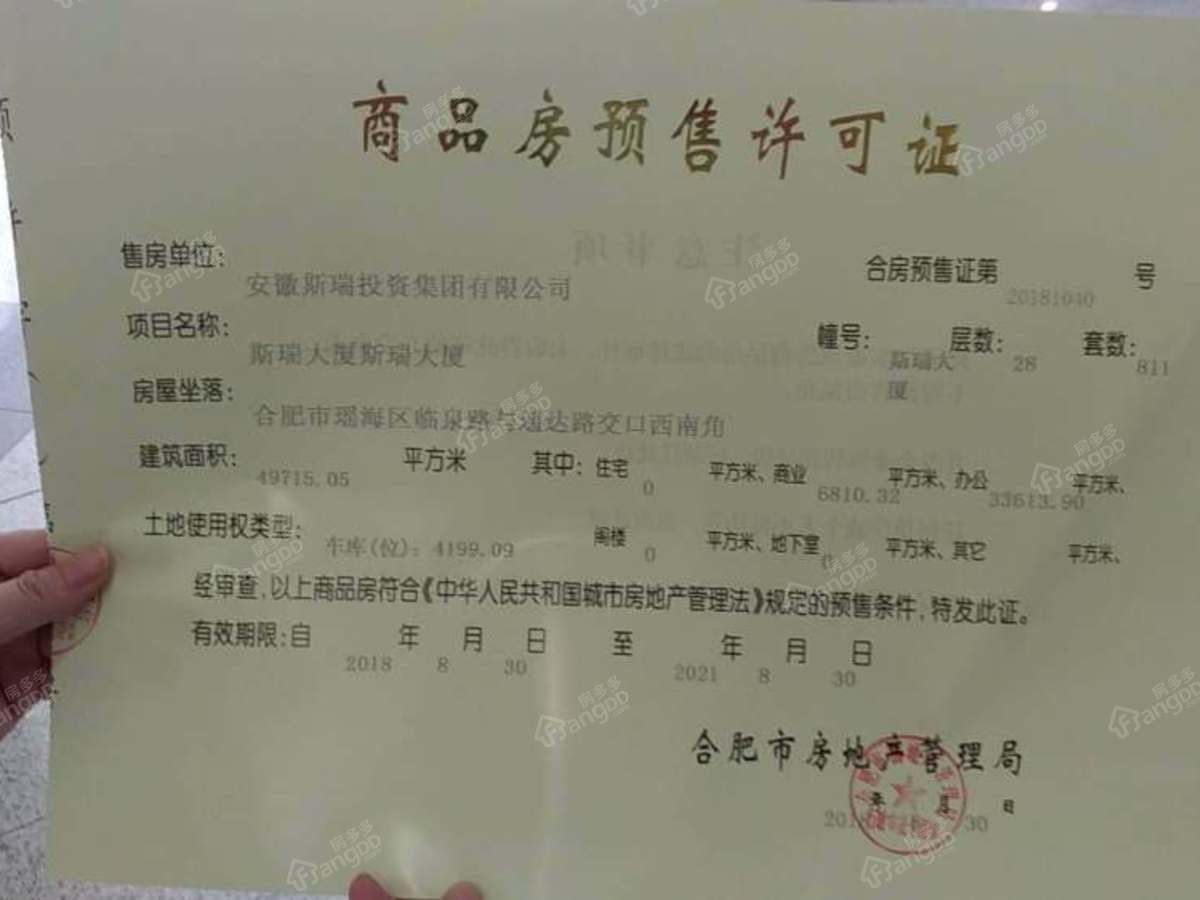 商品房预售许可证
售房单位: 安徽斯瑞投资集团有限公司 合房预售证第 20181040 号
项目名称: 斯瑞大厦斯瑞大厦 幢号: 斯瑞大厦 层数: 28 套数: 811
房屋坐落: 合肥市瑶海区临泉路与通达路交口西南角
建筑面积: 49715.05 平方米 其中: 住宅 0 平方米、商业 6810.32 平方米、办公 33613.90 平方米、
土地使用权类型: 车库(位): 4199.09 阁楼 0 平方米、地下室 0 平方米、其它 平方米、
经审查,以上商品房符合《中华人民共和国城市房地产管理法》规定的预售条件,特发此证。
有效期限:自 2018 年 8 月 30 日 至 2021 年 8 月 30 日
合肥市房地产管理局
2018 年 月 30 日
房多多
Fangdd